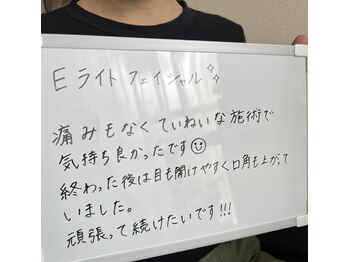 Eライトフェイシャル✨
痛みもなくていねいな施術で
気持ち良かったです☺
終わった後は目も開けやすく口角も上がって
いました。
頑張って続けたいです!!!